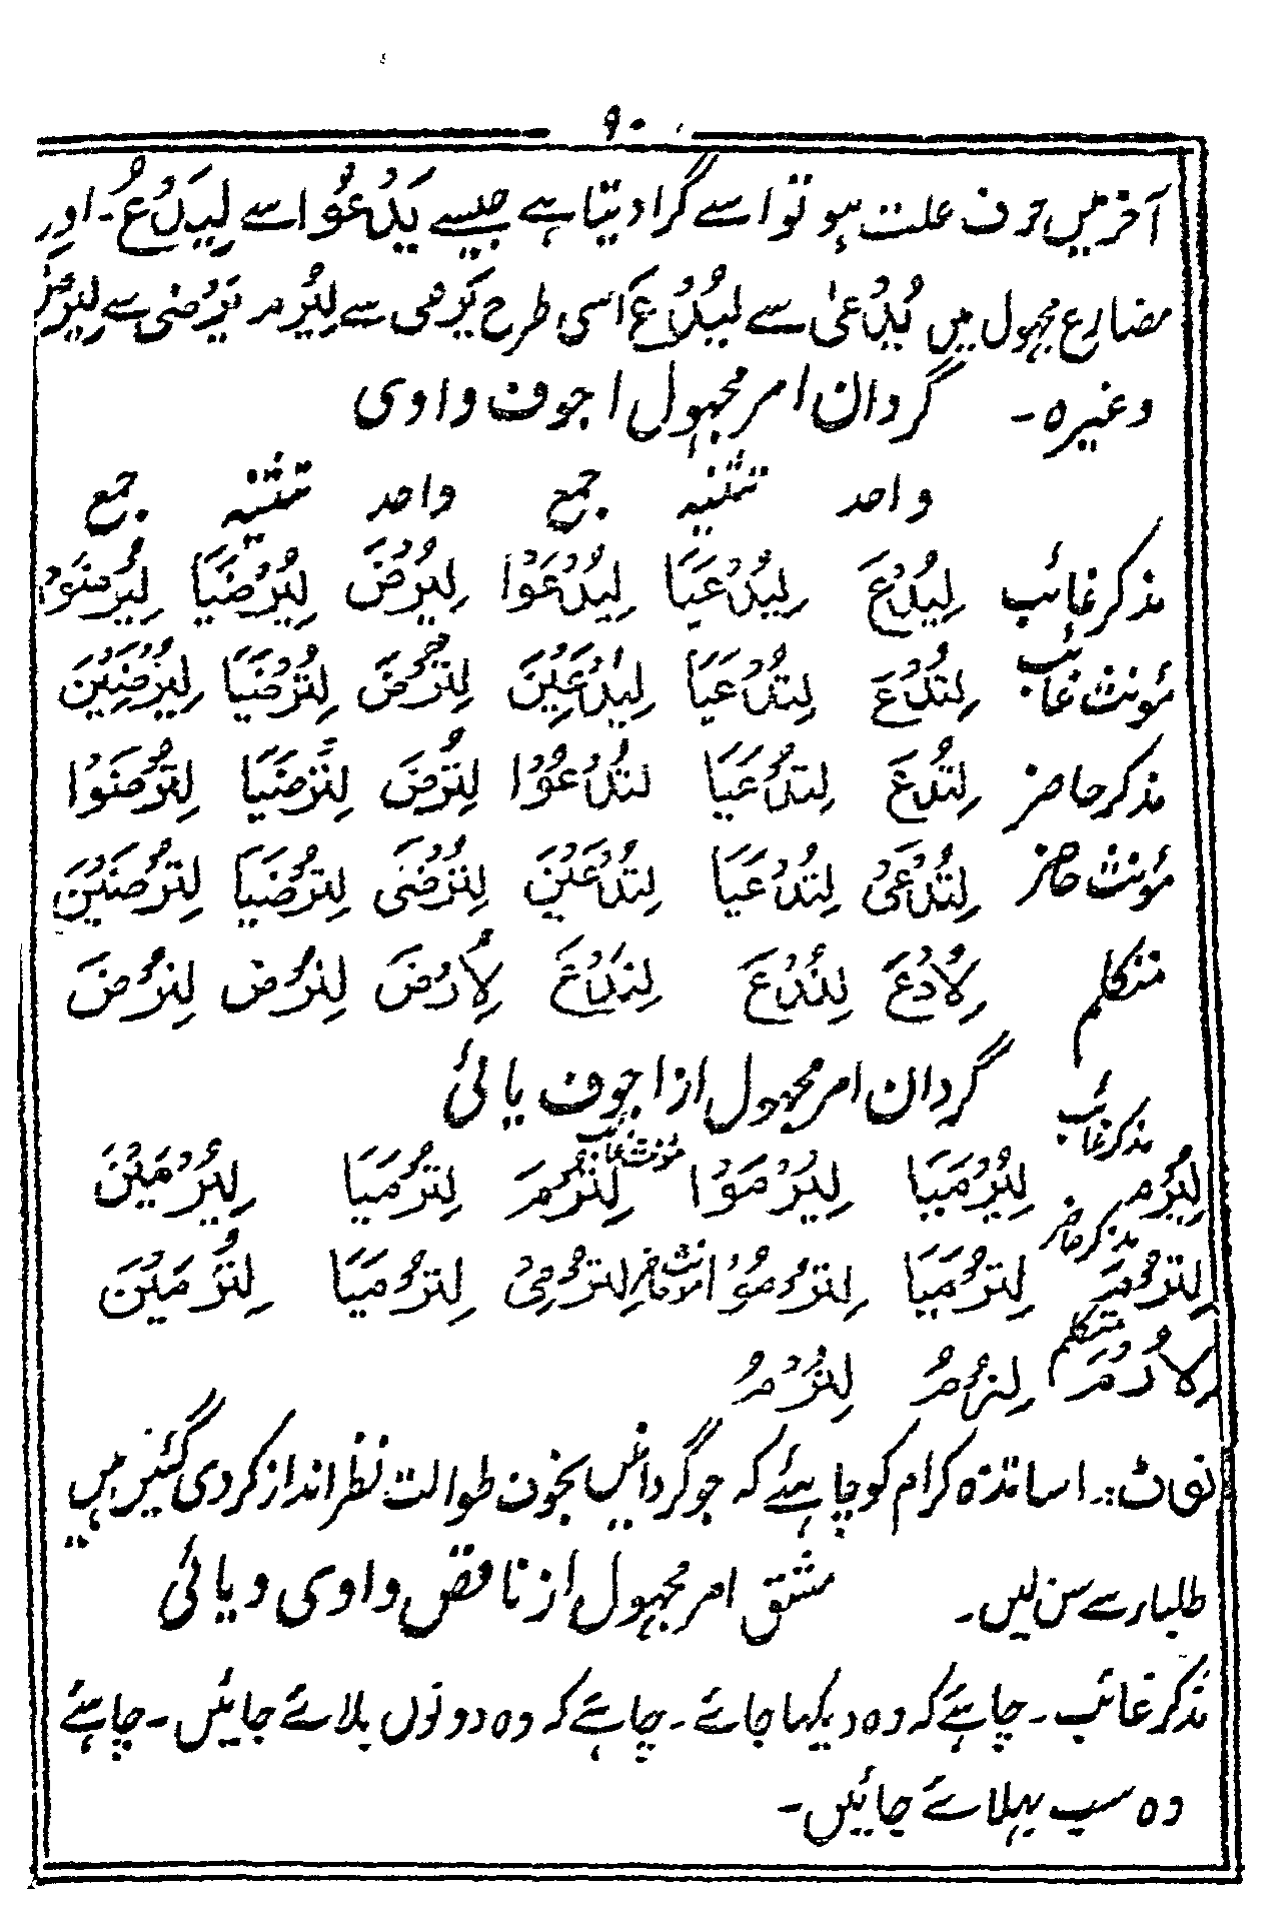 ۹۰
آخر میں حرف علت ہو تو اسے گرا دیتا ہے جیسے یَدْعُوْا سے لِیَدْعُ۔ اور
مضارع مجہول میں یُدْعیٰ سے لِیُدْعَ اسی طرح یَرْمی سے لِیُرْمَ یَرْضٰی سے لِیُرْضَ
وغیرہ۔ گردان امر مجہول اجوف واوی
واحد تثنیہ جمع واحد تثنیہ جمع
مذکر غائب لِیُدْعَ لِیُدْعَیَا لِیُدْعَوْا لِیُرْضَ لِیُرْضَیَا لِیُرْضَوْا
مؤنث غائب لِتُدْعَ لِتُدْعَیَا لِیُدْعَیْنَ لِتُرْضَ لِتُرْضَیَا لِیُرْضَیْنَ
مذکر حاضر لِتُدْعَ لِتُدْعَیَا لتُدْعَوْا لِتُرْضَ لِتُرْضَیَا لِتُرْضَوْا
مؤنث حاضر لِتُدْعَیْ لِتُدْعَیَا لِتُدْعَیْنَ لِتُرْضَیْ لِتُرْضَیَا لِتُرْضَیْنَ
متکلم لِاُدْعَ لِنُدْعَ لِنُدْعَ لِاُرْضَ لِنُرْضَ لِنُرْضَ
گردان امر مجہول از اجوف یائی
مذکر غائب لِیُرْمَ لِیُرْمَیَا لِیُرْمَوْا مؤنث غائب لِتُرْمَ لِتُرْمَیَا لِیُرْمَیْنَ
مذکر حاضر لِتُرْمَ لِتُرْمَیَا لِتُرْمَوْا لِتُرْمِیْ لِتُرْمَیَا لِتُرْمَیْنَ
متکلم لِاُرْمَ لِنُرْمُ لِنُرْمُ
نوٹ:۔ اساتذہ کرام کو چاہئے کہ جو گردانیں بخوف طوالت نظر انداز کردی گئیں ہیں
طلباء سے سن لیں۔ مشق امر مجہول از ناقص واوی و یائی
مذکر غائب۔ چاہئے کہ وہ دیکھا جائے۔ چاہئے کہ وہ دونوں بلائے جائیں۔ چاہئے
وہ سب بہلائے جائیں۔